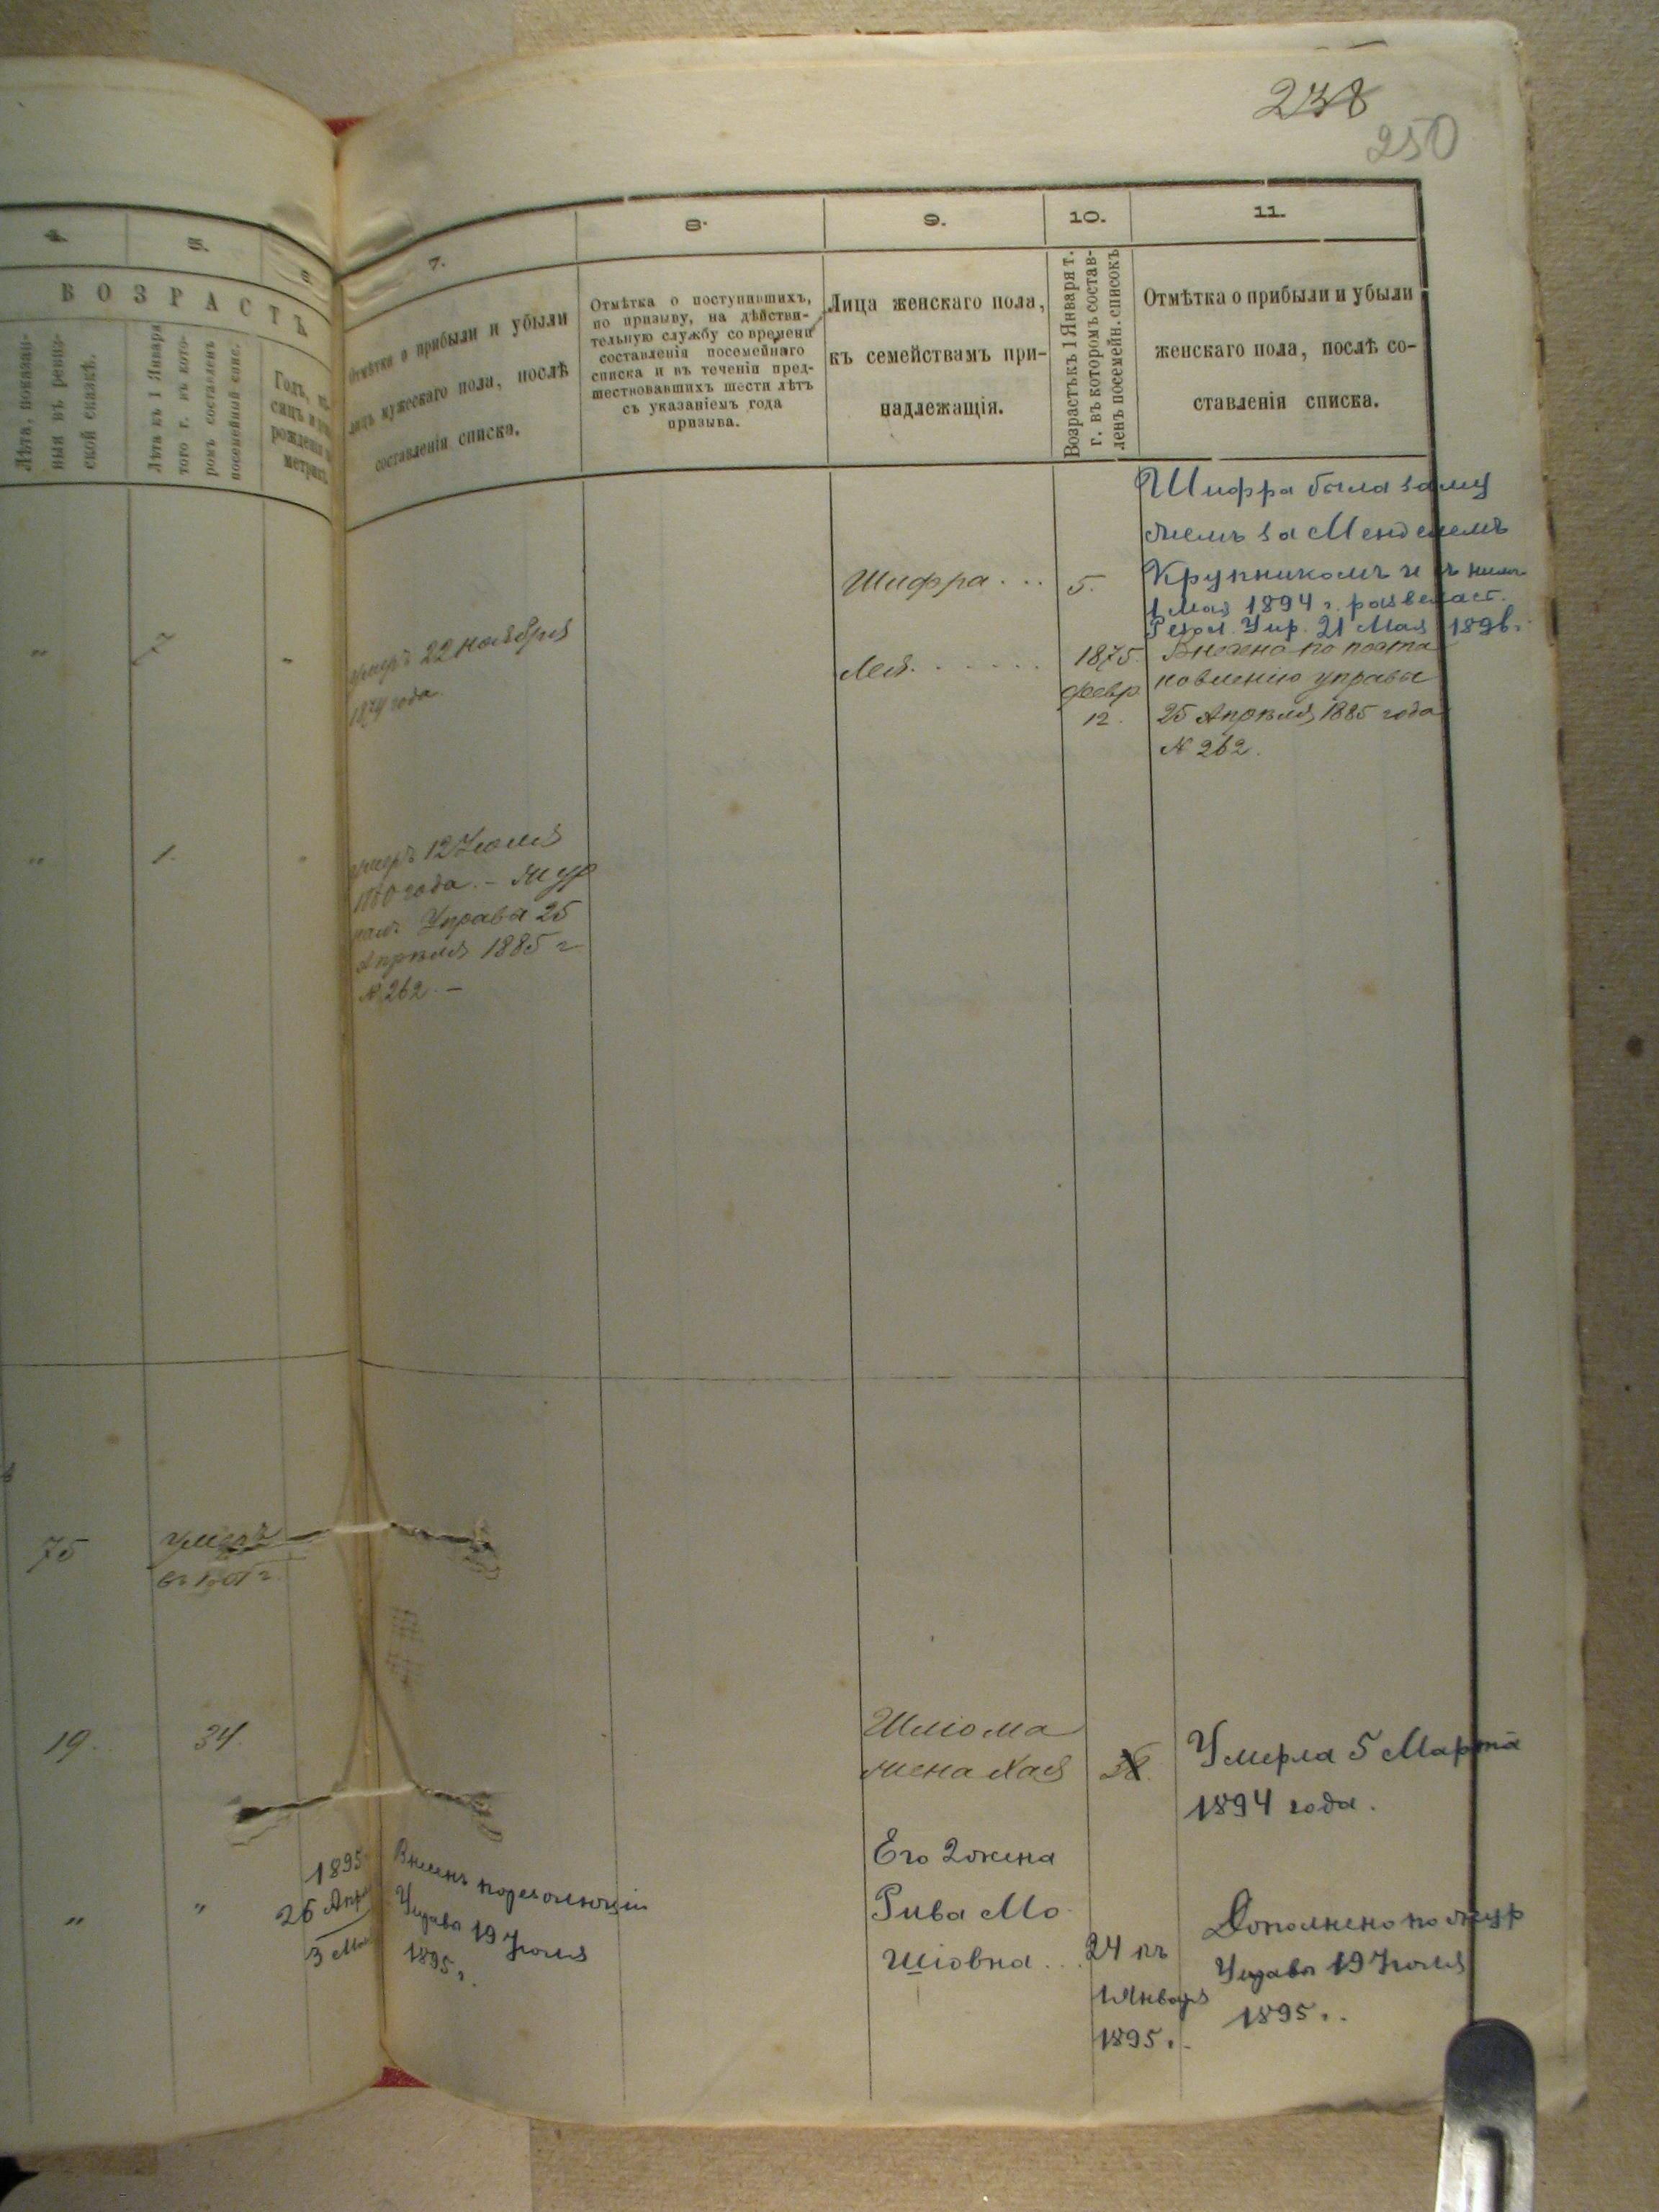 238
250
4.
5.
6
7.
8.
9.
10.
11.
ВОЗРАСТЪ
Лѣта, показан-
ныя въ ревиз-
ской сказкѣ.
Лѣта къ 1 Января
того г. въ кото-
ромъ составленъ
посемейный спис.
Годъ, мѣ-
сяцъ и
рожденія
метрик
Отмѣтка о прибыли и убыли
лицъ мужескаго пола, послѣ
составленія списка.
Отмѣтка о поступившихъ,
по призыву, на дѣйстви-
тельную службу со времени
составленія посемейнаго
списка и въ теченіи пред-
шествовавшихъ шести лѣтъ
съ указаніемъ года
призыва.
Лица женскаго пола,
къ семействамъ при-
надлежащія.
Возрастъ къ 1 Января т.
г. въ которомъ состав-
ленъ посемейн. списокъ
Отмѣтка о прибыли и убыли
женскаго пола, послѣ со-
ставленія списка.
"
7
-
умеръ 22 ноября
1874 года.
Шифра . . .
5.
Шифра была заму
жемъ за Менделемъ
Крупникомъ и съ нимъ
1 Мая 1894 г. развелась.
Резол. Упр. 21 Мая 1896 г.
Лея . . . . . .
1875
февр.
12.
Внесена по поста
новленію управы
25 Апрѣля 1885 года
№ 262.
"
1.
умеръ 12 Іюля
1880 года. – Жур
налъ Управы 25
Апрѣля 1885 г
№ 262. –
75
умеръ
въ
19.
34
Шліома
жена Хая
38.
Умерла 5 Марта
1894 года.
"
"
1895
26 Апр
3 Мая
Внесенъ по резолюціи
Управы 19 Іюля
1895 г.
Его 2 жена
Рива Мо
шіовна . .
24 къ
1 Января
1895 г.
Дополнено по жур
Управы 19 Іюля
1895 г.